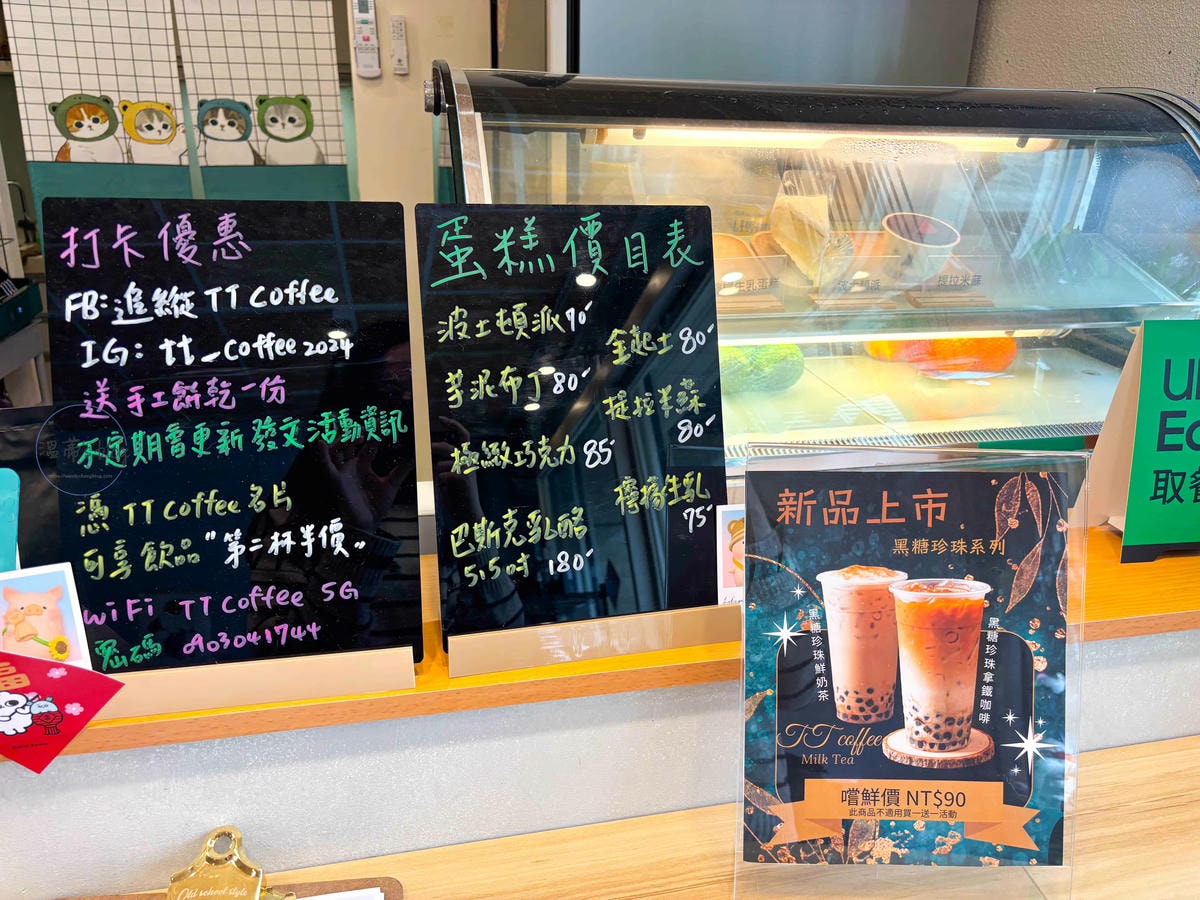 打卡優惠
FB:追縱 TT Coffee
IG: tt_coffee2024
送手工餅乾一份
不定期會更新發文活動資訊
憑 TT Coffee 名片
可享飲品"第二杯半價"
WiFi TT Coffee 5G
密碼 a03041744
蛋糕價目表
波士頓派 90
芋泥布丁 80
極緻巧克力 85
巴斯克乳酪
5.5吋 180
金起士 80
提拉米蘇
80
檸檬生乳
75
生乳蛋糕
提拉米蘇
取餐
新品上市
黑糖珍珠系列
黑糖珍珠鮮奶茶
黑糖珍珠拿鐵咖啡
TT coffee
Milk Tea
嚐鮮價 NT$90
此商品不適用買一送一活動
福
Old school style